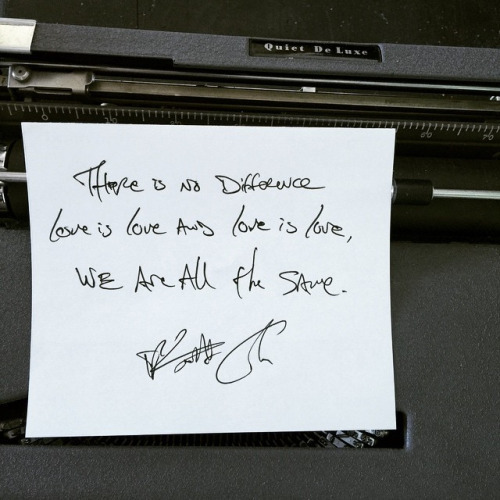 Quiet De Luxe
There is no Difference
love is love and love is love,
WE Are All the Same.